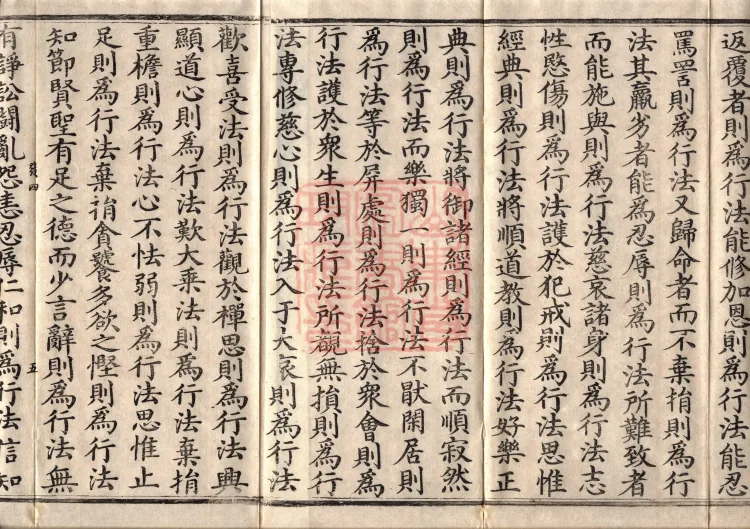 返覆者則爲行法能修加恩則爲行法能忍
罵詈則爲行法又歸命者而不棄捐則爲行
法其羸劣者能爲忍辱則爲行法所難致者
而能施與則爲行法慈哀諸身則爲行法志
性愍傷則爲行法護於犯戒則爲行法思惟
經典則爲行法將順道教則爲行法好樂正
典則爲行法將御諸經則爲行法而順寂然
則爲行法而樂獨一則爲行法不猒閑居則
爲行法等於屏處則爲行法捨於衆會則爲
行法護於衆生則爲行法所觀無損則爲行
法專修慈心則爲行法入于大哀則爲行法
歡喜受法則爲行法觀於禪思則爲行法興
顯道心則爲行法歎大乘法則爲行法棄捐
重檐則爲行法心不怯弱則爲行法思惟止
足則爲行法棄捐貪饕多欲之慳則爲行法
知節賢聖有足之德而少言辭則爲行法無
五
有諍訟鬪亂怨恚忍辱仁和則爲行法信知